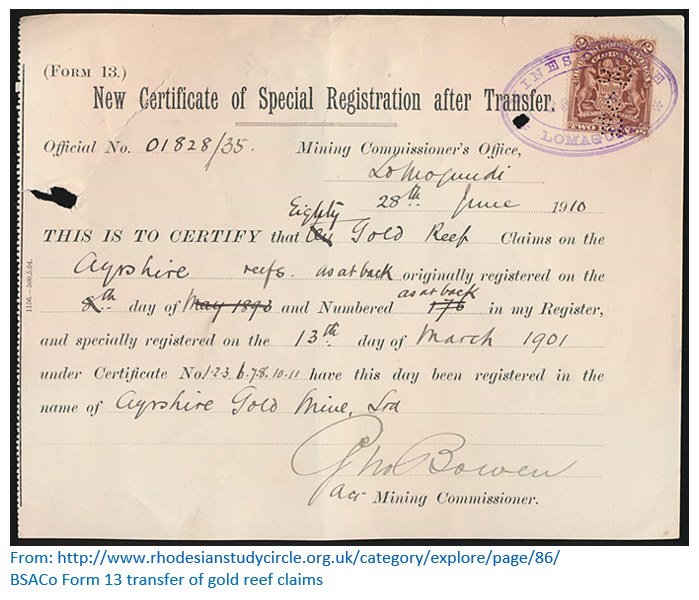 (FORM 13.)
New Certificate of Special Registration after Transfer.
MINES OFFICE
LOMAGUNDI
2 2
TWO
Official No. 01828/35. Mining Commissioner's Office,
Lomogundi
28th June 1910
Eighty
THIS IS TO CERTIFY that Gold Reef Claims on the
Ayrshire reefs. as at back originally registered on the
as at back
8th day of May 1893 and Numbered 176 in my Register,
and specially registered on the 13th day of March 1901
under Certificate No 1-2-3 6.7.8.10.11 have this day been registered in the
name of Ayrshire Gold Mine, Ltd
Bowen
Mining Commissioner.
1156.—500,5.04.
From: http://www.rhodesianstudycircle.org.uk/category/explore/page/86/
BSACo Form 13 transfer of gold reef claims